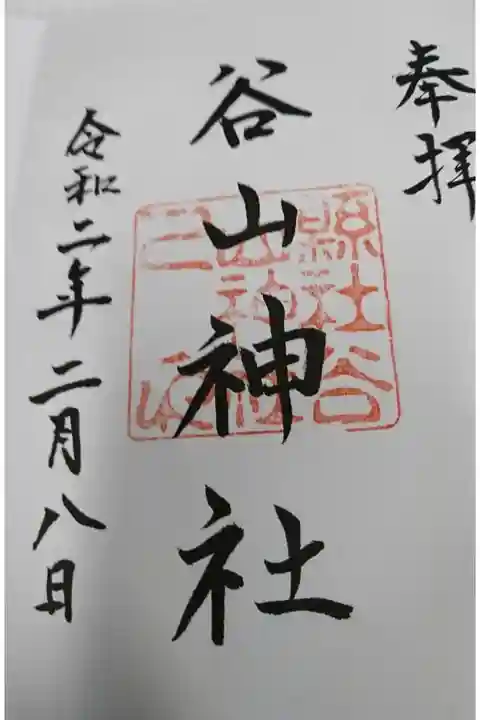 奉拝
谷山神社
縣社谷
山神社
令和二年二月八日